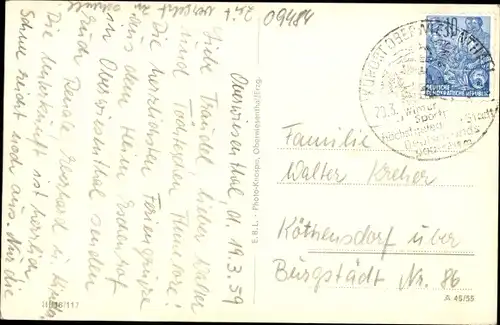 09484
Oberwiesenthal, d. 19.3.59
Liebe Traudel, lieber Walter
und Töchterchen Annelore!
Die herzlichsten Feriengrüße
aus dem Heim
in Oberwiesenthal senden
Euch Renate, Eberhard u.
Die Unterkunft ist herrlich,
Schnee reicht noch aus. Nur die
E.B.L. - Photo-Knospe, Oberwiesenthal/Erzg.
KURORT OBERWIESENTHAL
Wintersport-
Höchstgelegene Stadt
Deutschlands
10
5
DEUTSCHE
DEMOKRATISCHE REPUBLIK
Familie
Walter Kreher
Köthensdorf über
Burgstädt Nr. 86
A 45/55